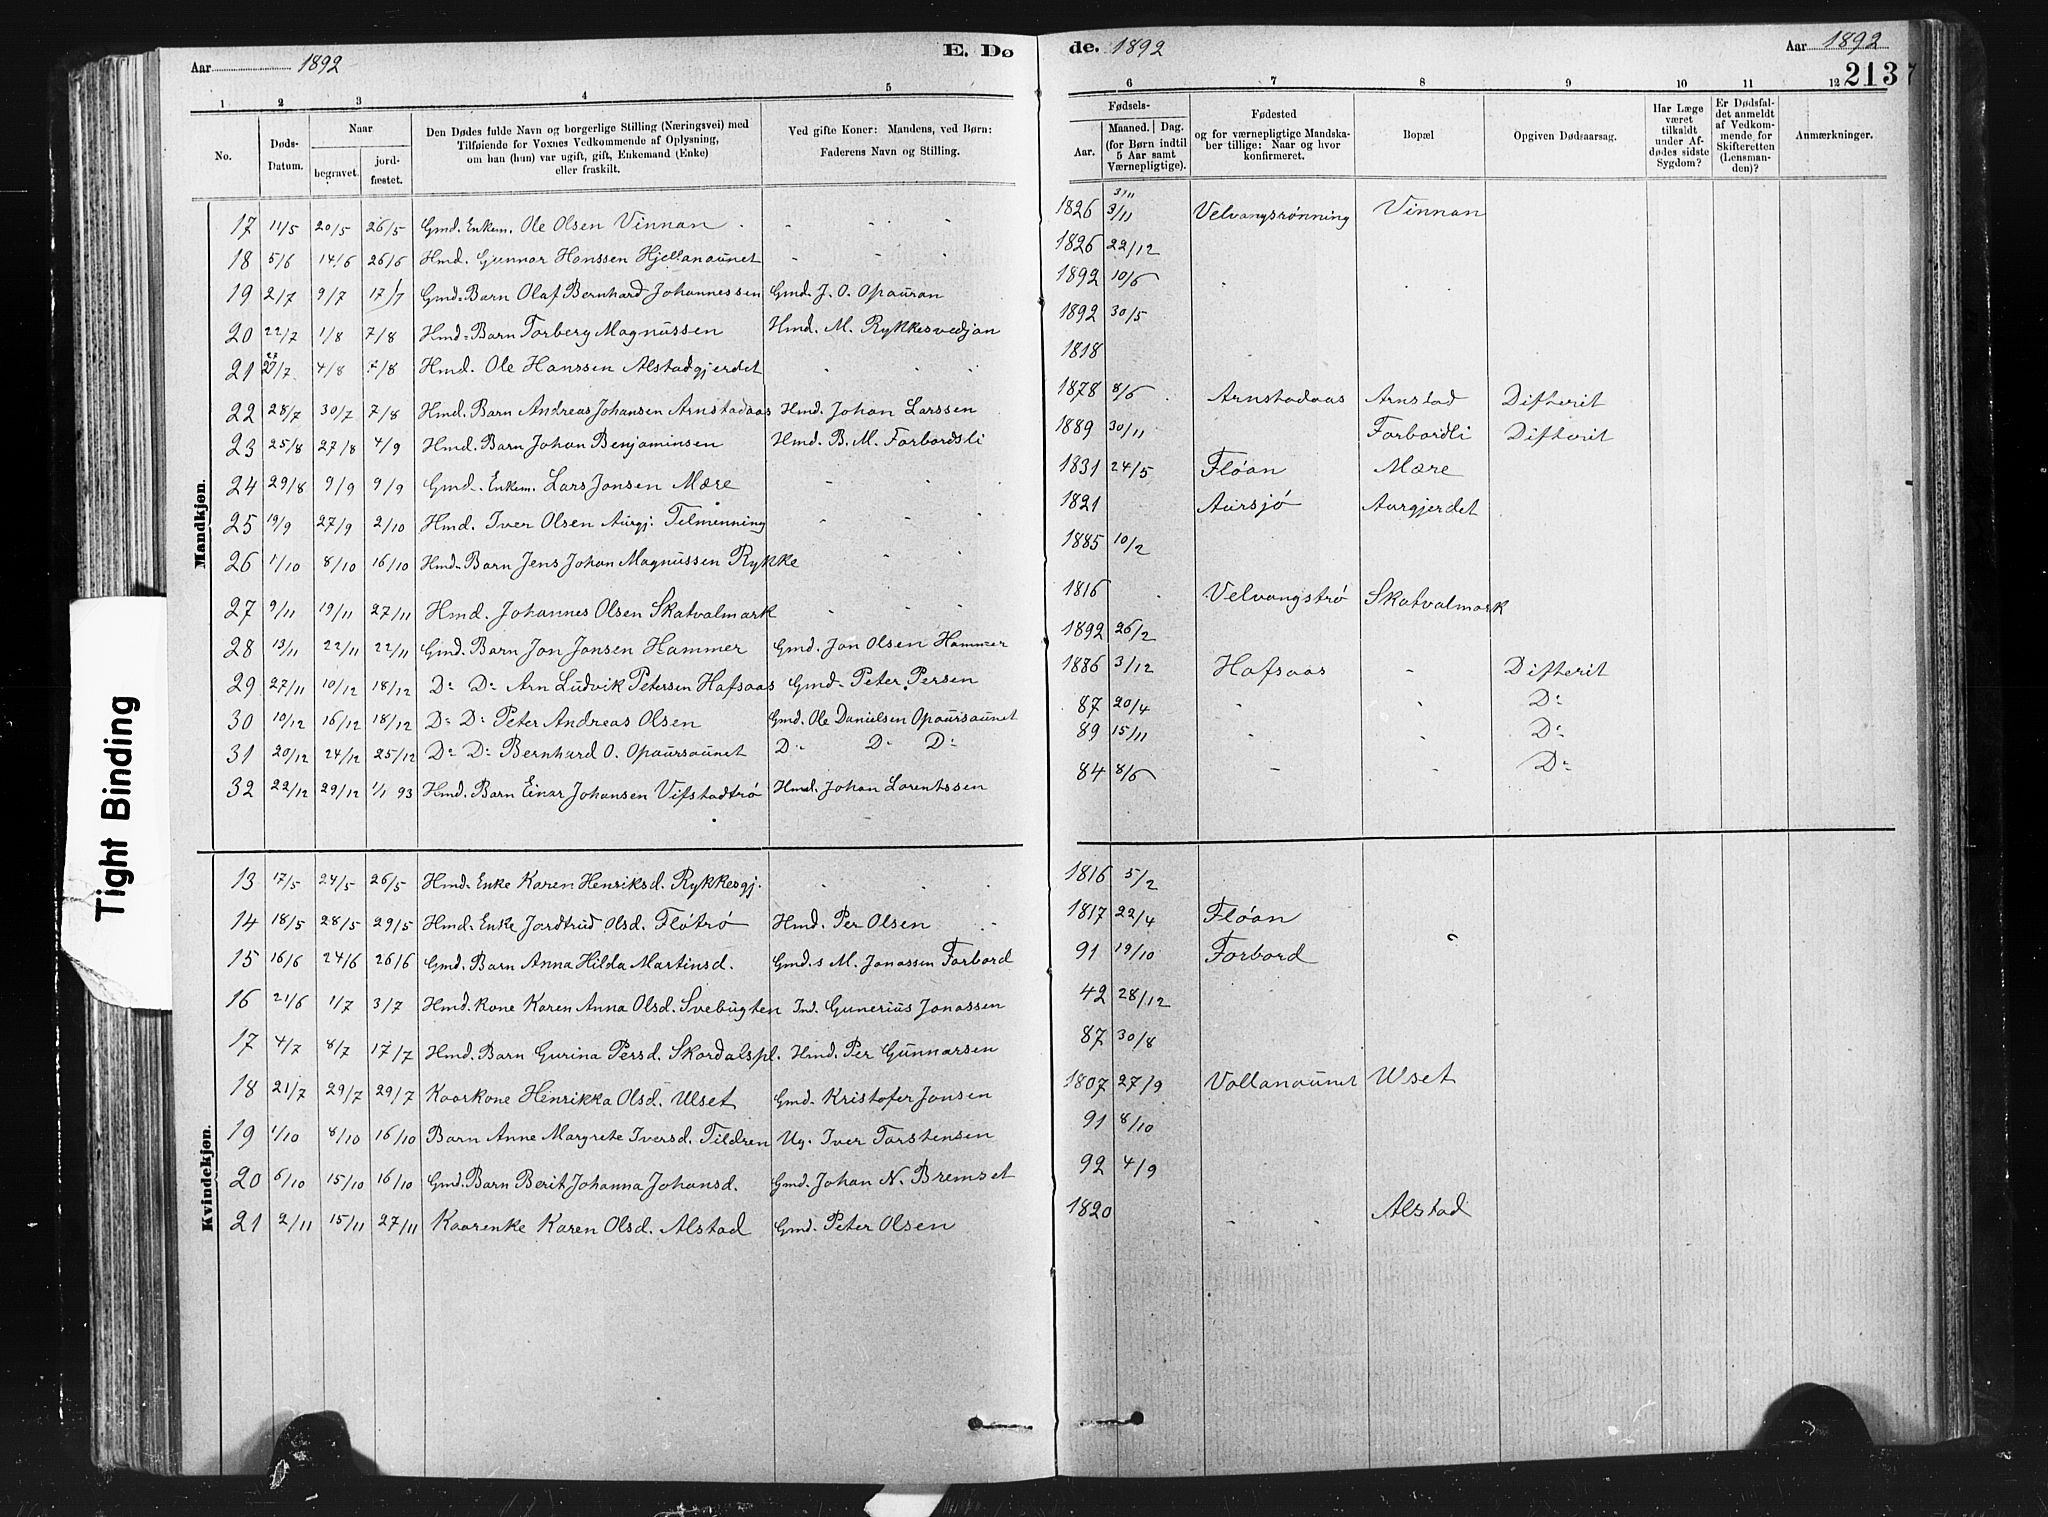 Aar 1892 E. Dø
1 2 3 4 5
No. Døds-Datum. Naar begravet. jordfæstet. Den Dødes fulde Navn og borgerlige Stilling (Næringsvei) med Tilføiende for Voxnes Vedkommende af Oplysning, om han (hun) var ugift, gift, Enkemand (Enke) eller fraskilt. Ved gifte Koner: Mandens, ved Børn: Faderens Navn og Stilling.
Mandkjøn.
17 11/5 20/5 26/5 Gmd. Enkem. Ole Olsen Vinnan - - -
18 5/6 14/6 26/6 Hmd. Gunnar Hanssen Hjellanaunet - - -
19 2/7 9/7 17/7 Gmd. Barn Olaf Bernhard Johannessen Gmd. J. O. Opauran
20 22/7 1/8 7/8 Hmd. Barn Torberg Magnussen Hmd. M. Rykkesvedjan
21 27/7 27 4/8 7/8 Hmd. Ole Hanssen Alstadgjerdet - - -
22 28/7 30/7 7/8 Hmd. Barn Andreas Johansen Arnstadaas Hmd. Johan Larssen
23 25/8 27/8 4/9 Hmd. Barn Johan Benjaminsen Hmd. B. M. Forbordsli
24 29/8 9/9 9/9 Gmd. Enkem. Lars Jonsen Mære - - -
25 19/9 27/9 2/10 Hmd. Iver Olsen Aurgj. Telmenning - - -
26 1/10 8/10 16/10 Hmd. Barn Jens Johan Magnussen Rykke - -
27 9/11 19/11 27/11 Hmd. Johannes Olsen Skatvalmark - - -
28 13/11 22/11 22/11 Gmd. Barn Jon Jonsen Hammer Gmd. Jon Olsen Hammer
29 27/11 10/12 18/12 D: D: Arn Ludvik Petersen Hafsaas Gmd. Peter Persen
30 10/12 16/12 18/12 D: D: Peter Andreas Olsen Gmd. Ole Danielsen Opaursaunet
31 20/12 24/12 25/12 D: D: Bernhard O. Opaursaunet D: D: D:
32 22/12 29/12 1/1 93 Hmd. Barn Einar Johansen Vifstadtrø Hmd. Johan Lorentssen
Kvindekjøn.
13 17/5 24/5 26/5 Hmd. Enke Karen Henriksd. Rykkesgj. - - -
14 18/5 28/5 29/5 Hmd. Enke Jordtrud Olsd. Flótrø Hmd. Per Olsen
15 16/6 24/6 26/6 Gmd. Barn Anna Hilda Martinsd. Gmd.s M. Jonassen Forbord
16 21/6 1/7 3/7 Hmd. Kone Karen Anna Olsd. Svebugten Ind. Gunerius Jonassen
17 4/7 8/7 17/7 Hmd. Barn Gurina Persd. Skordalspl. Hmd. Per Gunnarsen
18 21/7 29/7 29/7 Kaarkone Henrikka Olsd. Ulset Gmd. Kristofer Jonsen
19 1/10 8/10 16/10 Barn Anne Margrete Iversd. Tildren Ug. Iver Torstensen
20 6/10 15/10 16/10 Gmd. Barn Berit Johanna Johansd. Gmd. Johan N. Bremset
21 2/11 15/11 27/11 Kaarenke Karen Olsd. Alstad Gmd. Peter Olsen
Tight Binding
de. 1892 Aar 1892
213
6 7 8 9 10 11 12
Fødsels- Aar. Maaned. Dag. (for Børn indtil 5 Aar samt Værnepligtige). Fødested og for værnepligtige Mandskaber tillige: Naar og hvor konfirmeret. Bopæl Opgiven Dødsaarsag. Har Læge været tilkaldt under Afdødes sidste Sygdom? Er Dødsfaldet anmeldt af Vedkommende for Skifteretten (Lensmanden)? Anmærkninger.
1826 3/11 3/11 Velvangsrønning Vinnan
1826 22/12
1892 10/6
1892 30/5
1818
1878 8/6 Arnstadaas Arnstad Difterit
1889 30/11 Forbordli Difterit
1831 24/5 Flóan Mære
1821 Aursjó Aurgjerdet
1885 10/2
1816 Velvangstrø Skatvalmark
1892 26/2
1886 3/12 Hafsaas - Difterit
87 20/4 - - D:
89 15/11 - - D:
84 8/6 - - D:
1816 5/2
1817 22/4 Flóan
91 19/10 Forbord
42 28/12
87 30/8
1807 27/9 Vollanaunet Ulset
91 8/10
92 4/9
1820 - - Alstad